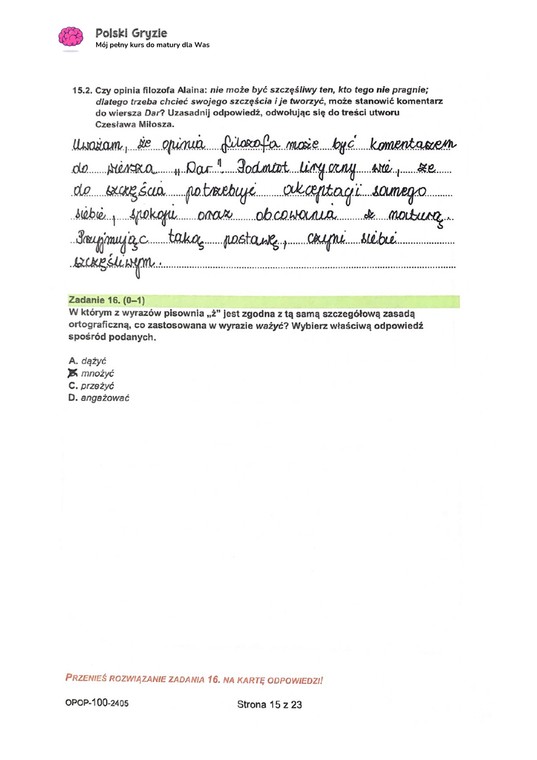 Polski Gryzie
Mój pełny kurs do matury dla Was
15.2. Czy opinia filozofa Alaina: nie może być szczęśliwy ten, kto tego nie pragnie;
dlatego trzeba chcieć swojego szczęścia i je tworzyć, może stanowić komentarz
do wiersza Dar? Uzasadnij odpowiedź, odwołując się do treści utworu
Czesława Miłosza.
Uważam, że opinia filozofa może być komentarzem
do wiersza „Dar". Podmiot liryczny wie, że
do szczęścia potrzebuje akceptacji samego
siebie, spokoju oraz obcowania z naturą.
Przyjmując taką postawę, czyni siebie
szczęśliwym.
Zadanie 16. (0–1)
W którym z wyrazów pisownia „ż” jest zgodna z tą samą szczegółową zasadą
ortograficzną, co zastosowana w wyrazie ważyć? Wybierz właściwą odpowiedź
spośród podanych.
A. dążyć
B. mnożyć
C. przeżyć
D. angażować
PRZENIEŚ ROZWIĄZANIE ZADANIA 16. NA KARTĘ ODPOWIEDZI!
OPOP-100-2405 Strona 15 z 23